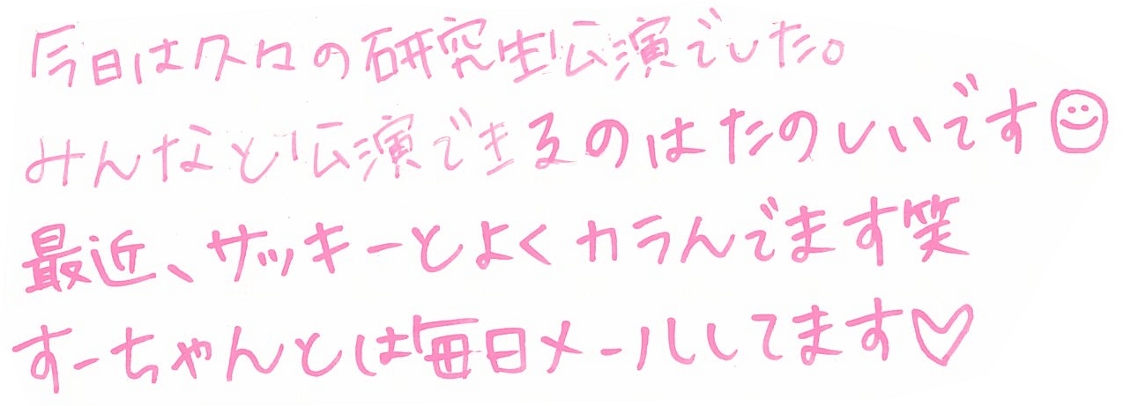 今日は久々の研究生公演でした。
みんなと公演できるのはたのしいです☺
最近、サッキーとよくカラんでます笑
すーちゃんとは毎日メールしてます♡